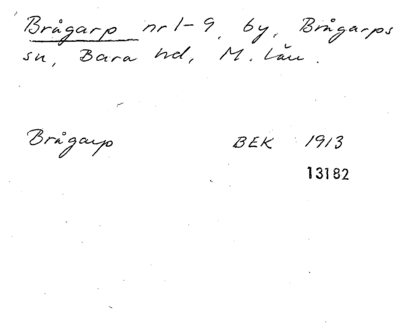 Brågarp nr 1-9, by, Brågarps
sn, Bara hd, M. län.
Brågarp BEK 1913
13182